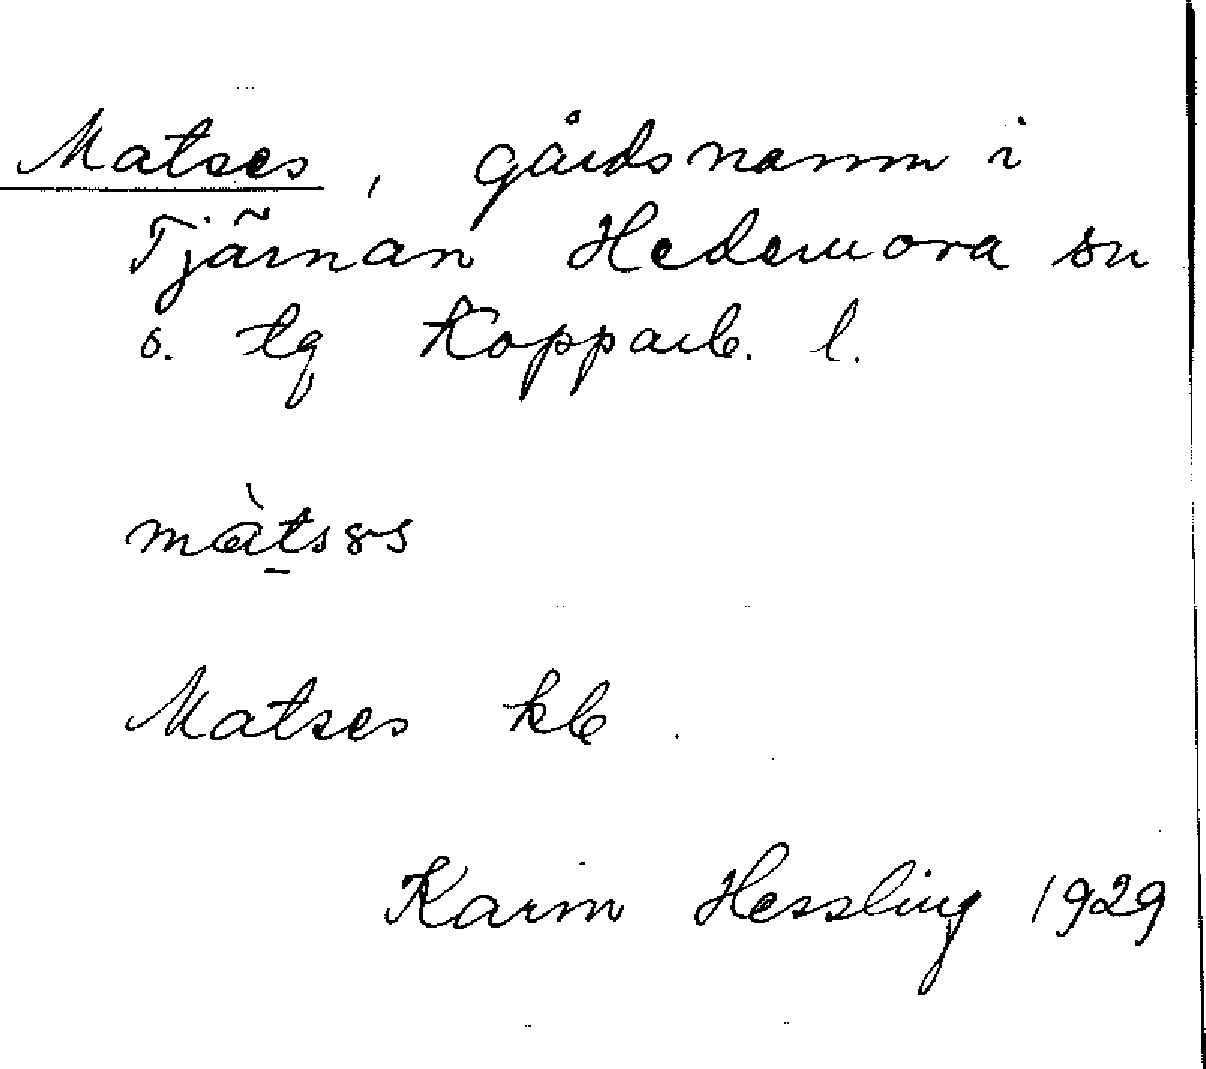 Matses, gårdsnamn i
Tjärnan Hedemora sn
o. tg Kopparb. l.
màtsəs
Matses kb.
Karin Hessling 1929